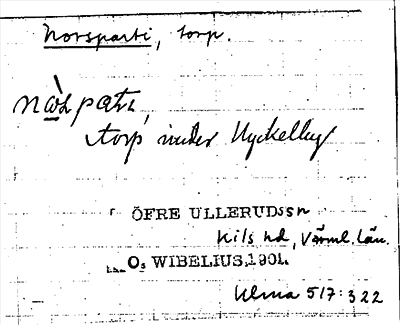 Norsparti, torp.
torp under Nyckelby
ÖFRE ULLERUDssn
Kils hd, Värml. län.
O. WIBELIUS,1901.
Ulma 517:322